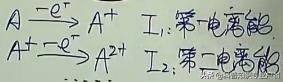 A —-e⁻→ A⁺ I₁:第一电离能
A⁺ —-e⁻→ A²⁺ I₂:第二电离能